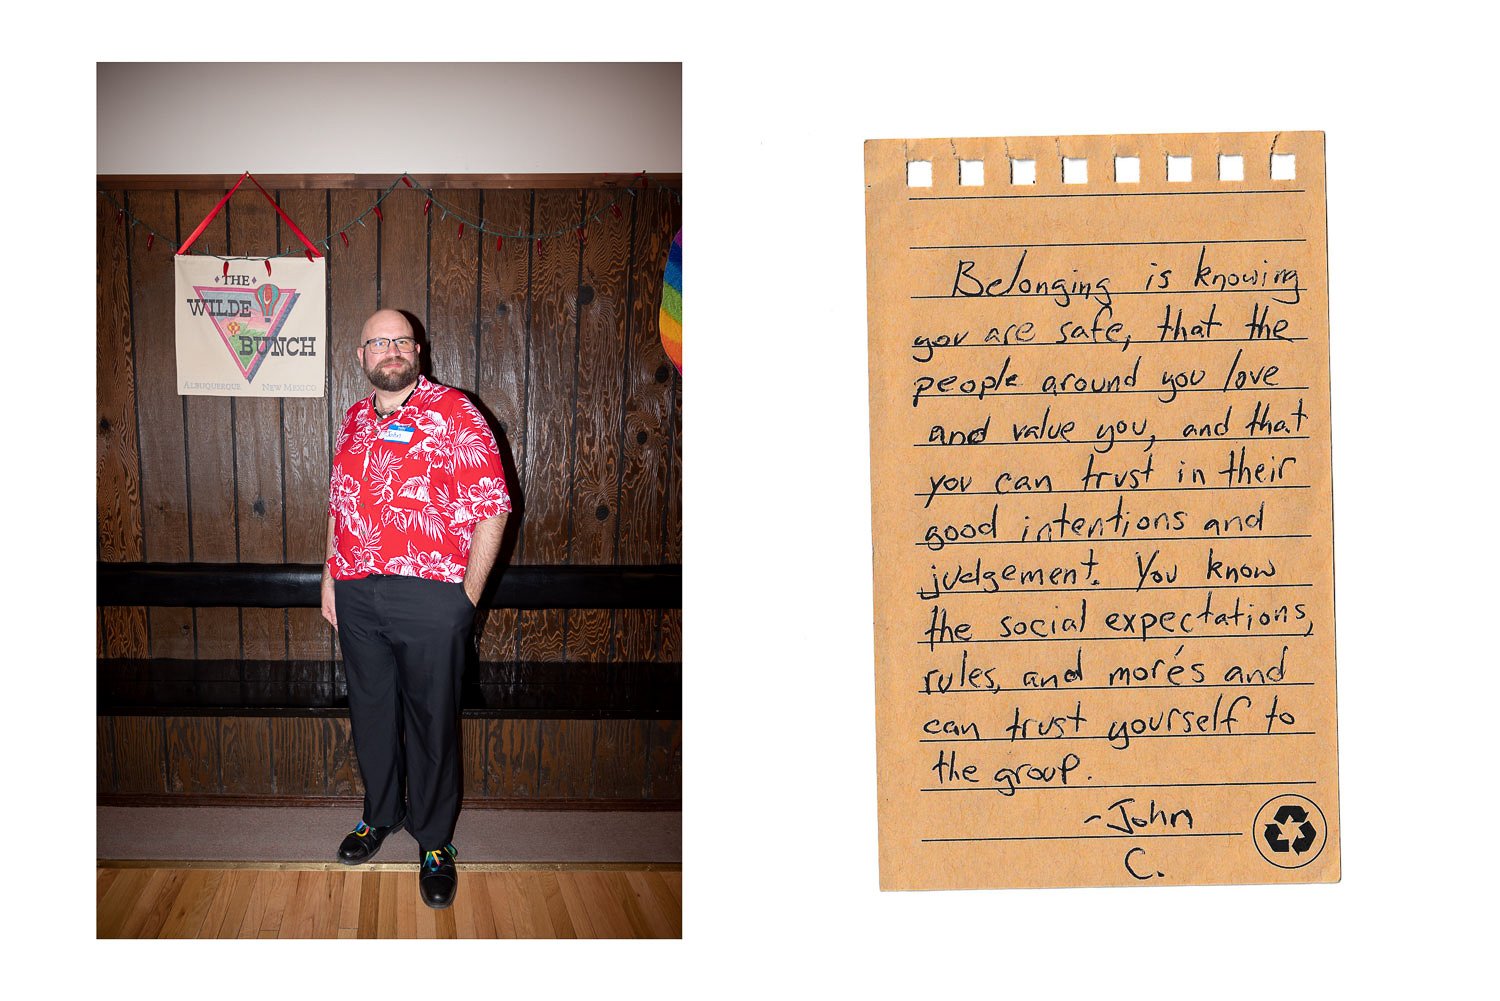 THE
WILDE
BUNCH
ALBUQUERQUE NEW MEXICO
John
Belonging is knowing
you are safe, that the
people around you love
and value you, and that
you can trust in their
good intentions and
judgement. You know
the social expectations,
rules, and morés and
can trust yourself to
the group.
-John
C.